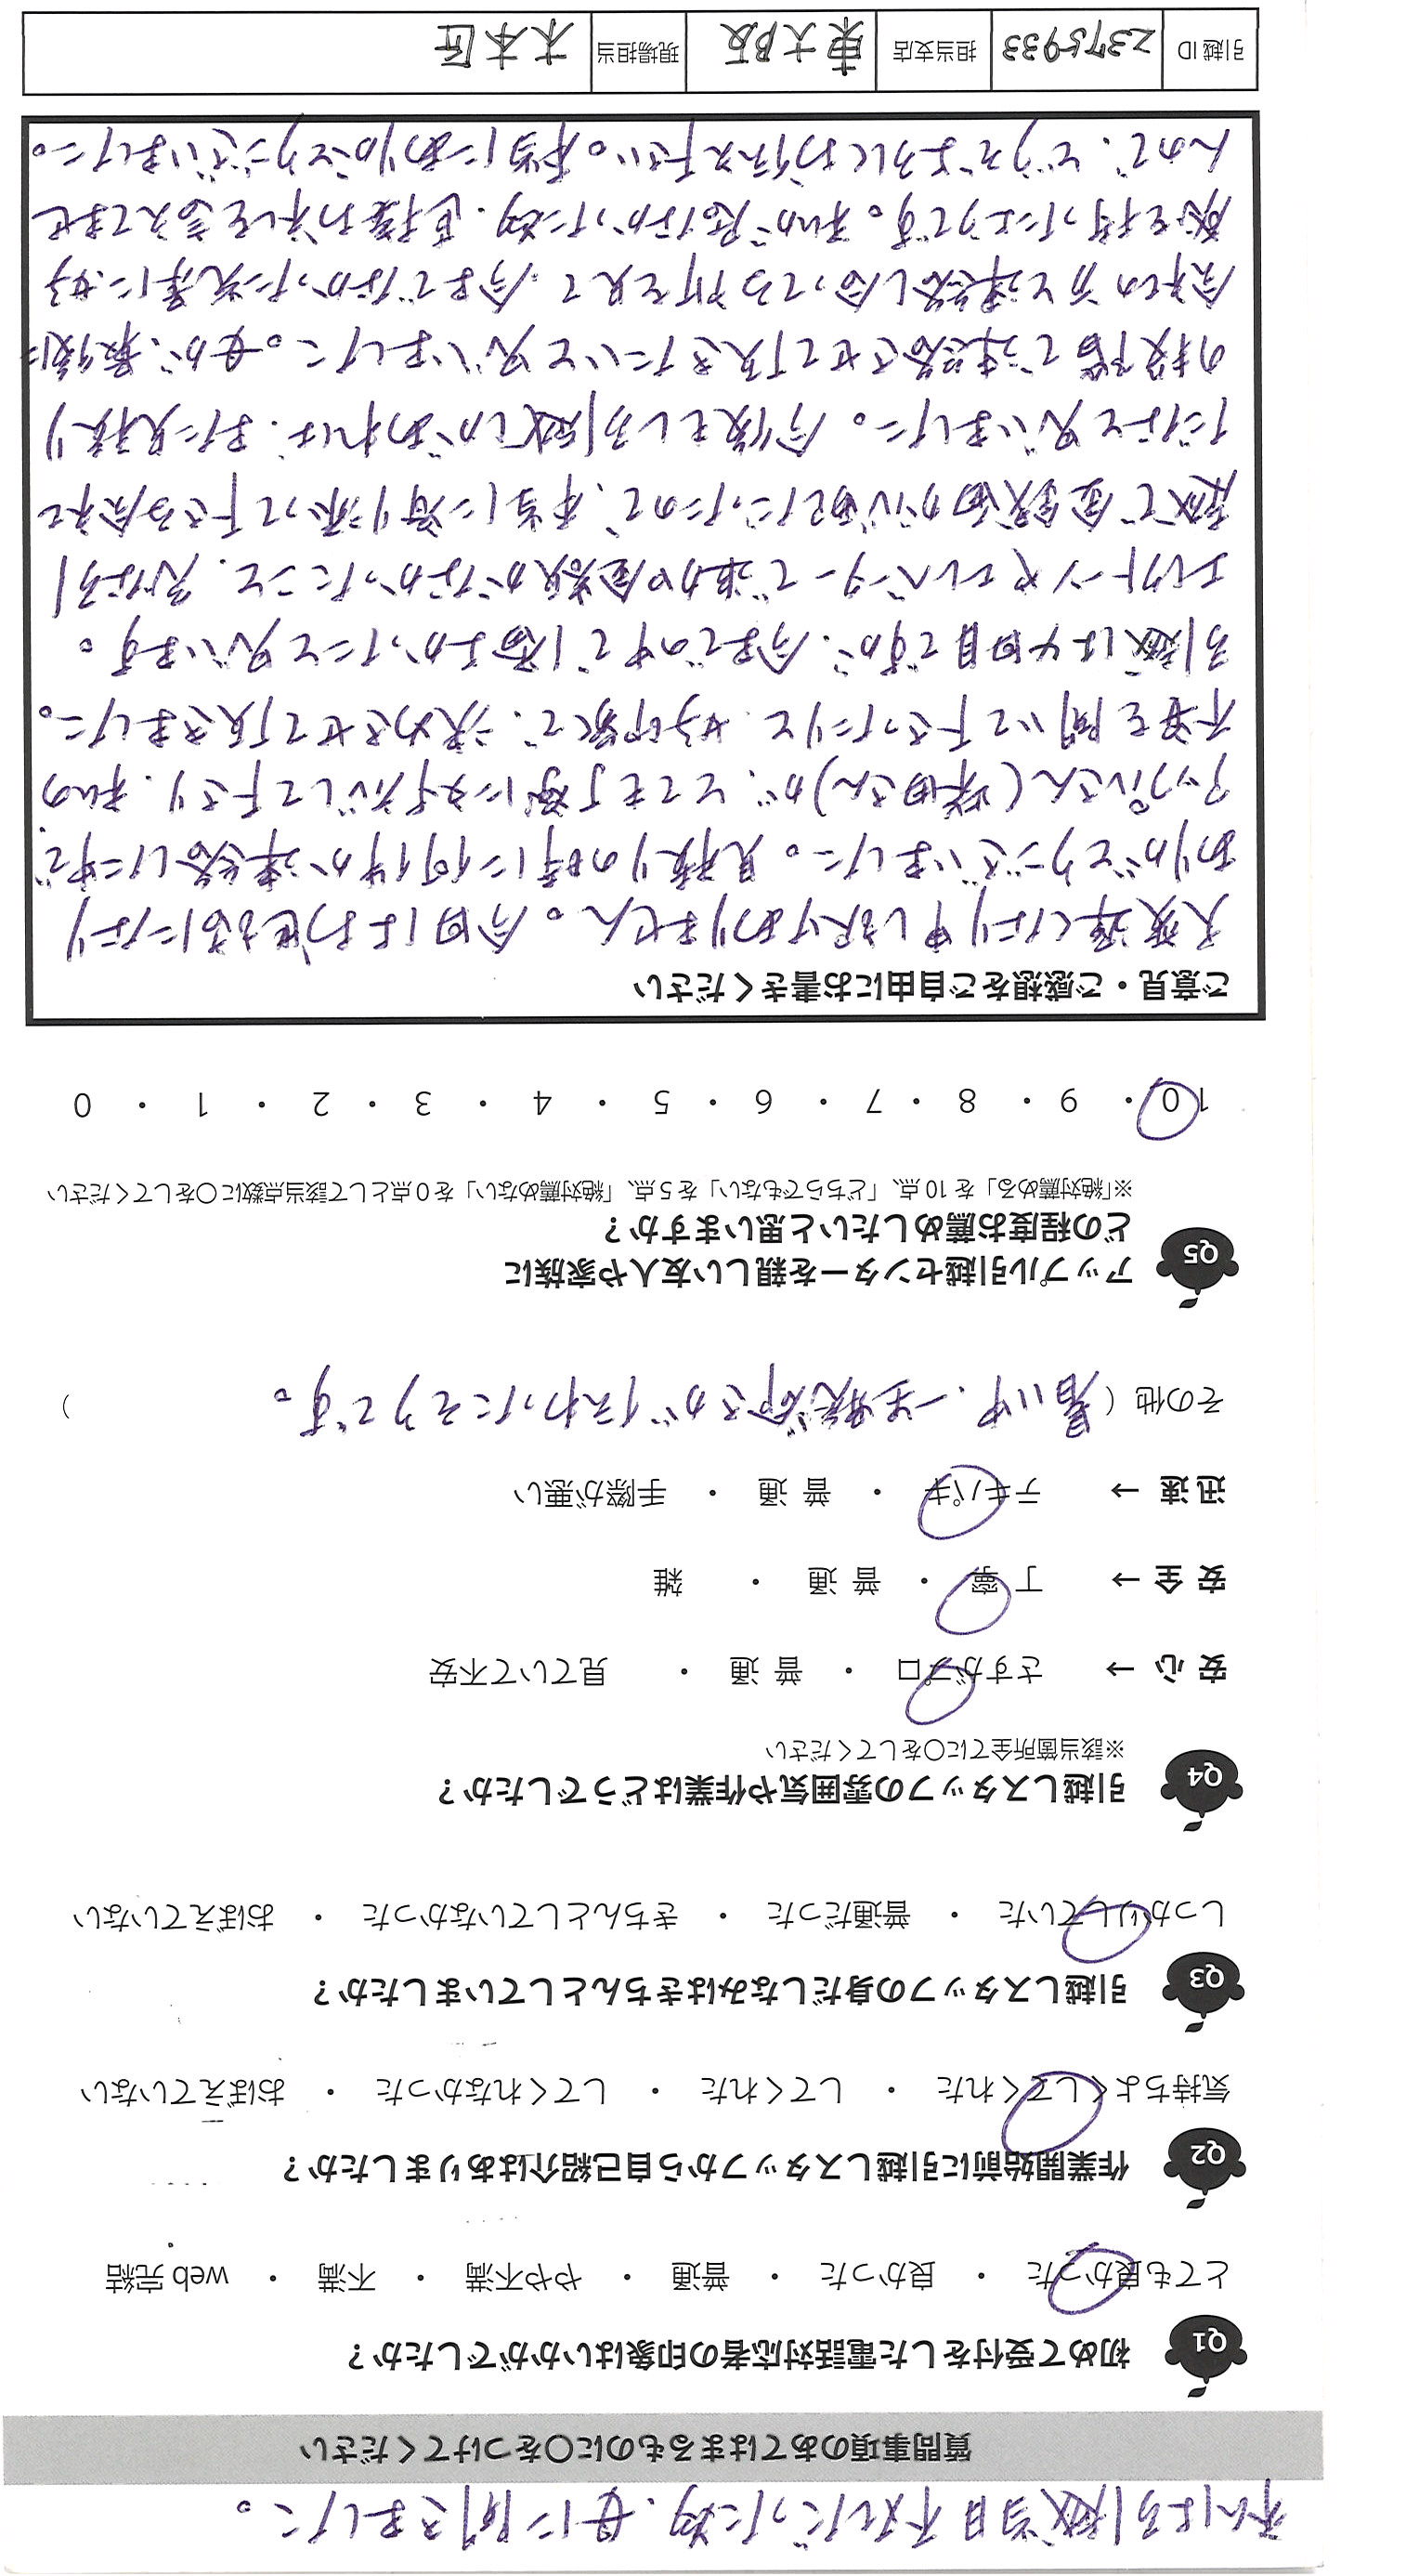 私は引越当日不在だった為、母に聞きました。
質問事項のあてはまるものに○をつけてください
Q1 初めて受付をした電話対応者の印象はいかがでしたか？
とても良かった ・ 良かった ・ 普通 ・ やや不満 ・ 不満 ・ web完結
Q2 作業開始前に引越しスタッフから自己紹介はありましたか？
気持ちよくしてくれた ・ してくれた ・ してくれなかった ・ おぼえていない
Q3 引越しスタッフの身だしなみはきちんとしていましたか？
しっかりしていた ・ 普通だった ・ きちんとしていなかった ・ おぼえていない
Q4 引越しスタッフの雰囲気や作業はどうでしたか？
※該当箇所全てに○をしてください
安心 → さすがプロ ・ 普通 ・ 見ていて不安
安全 → 丁寧 ・ 普通 ・ 雑
迅速 → テキパキ ・ 普通 ・ 手際が悪い
その他（暑い中、一生懸命さが伝わったそうです。）
Q5 アップル引越センターを親しい友人や家族に
どの程度お薦めしたいと思いますか？
※「絶対薦める」を10点、「どちらでもない」を5点、「絶対薦めない」を0点として該当点数に○をしてください
10 ・ 9 ・ 8 ・ 7 ・ 6 ・ 5 ・ 4 ・ 3 ・ 2 ・ 1 ・ 0
ご意見・ご感想をご自由にお書きください
大変遅くなり申し訳ありません。今回はお世話になり
ありがとうございました。見積りの時に何件か連絡した中で、
アップルさん(柴田さん)が、とても丁寧に対応して下さり、私の
不安を聞いて下さったりと、好印象で、決めさせて頂きました。
引越は4回目ですが、今までの中で1番よかったと思います。
エレクトーンやエレベーターで追加金額がなかったこと、急な引
越で金銭面が心配だったので、本当に寄り添って下さる会社
だなと思いました。今後もし引越しがあれば、また見積り
の段階で連絡させて頂きたいと思いました。母が、最後に
会社の方と連絡し合ってる所を見て、今までなかった光景に、好
感を持ったようです。私が居なかった為、直接お礼を言えてませ
んので、どうぞよろしくお伝え下さい。本当にありがとうございました。
引越ID 2375933 担当支店 東大阪 現場担当 木本匠